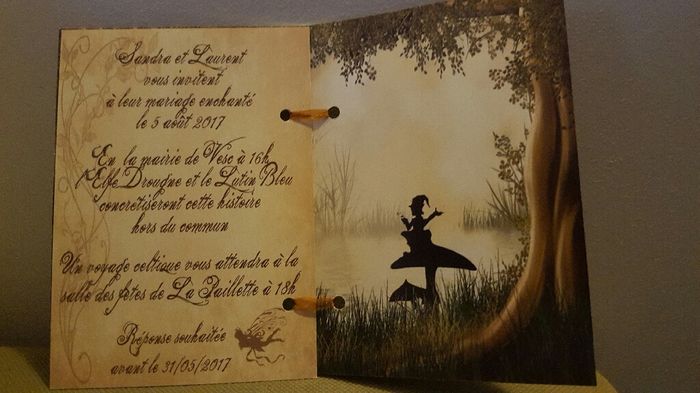 Sandra et Laurent
vous invitent
à leur mariage enchanté
le 5 août 2017
En la mairie de Vesc à 16h
l'Elfe Drougne et le Lutin Bleu
concrétiseront cette histoire
hors du commun
Un voyage celtique vous attendra à la
salle des fêtes de La Paillette à 18h
Réponse souhaitée
avant le 31/05/2017